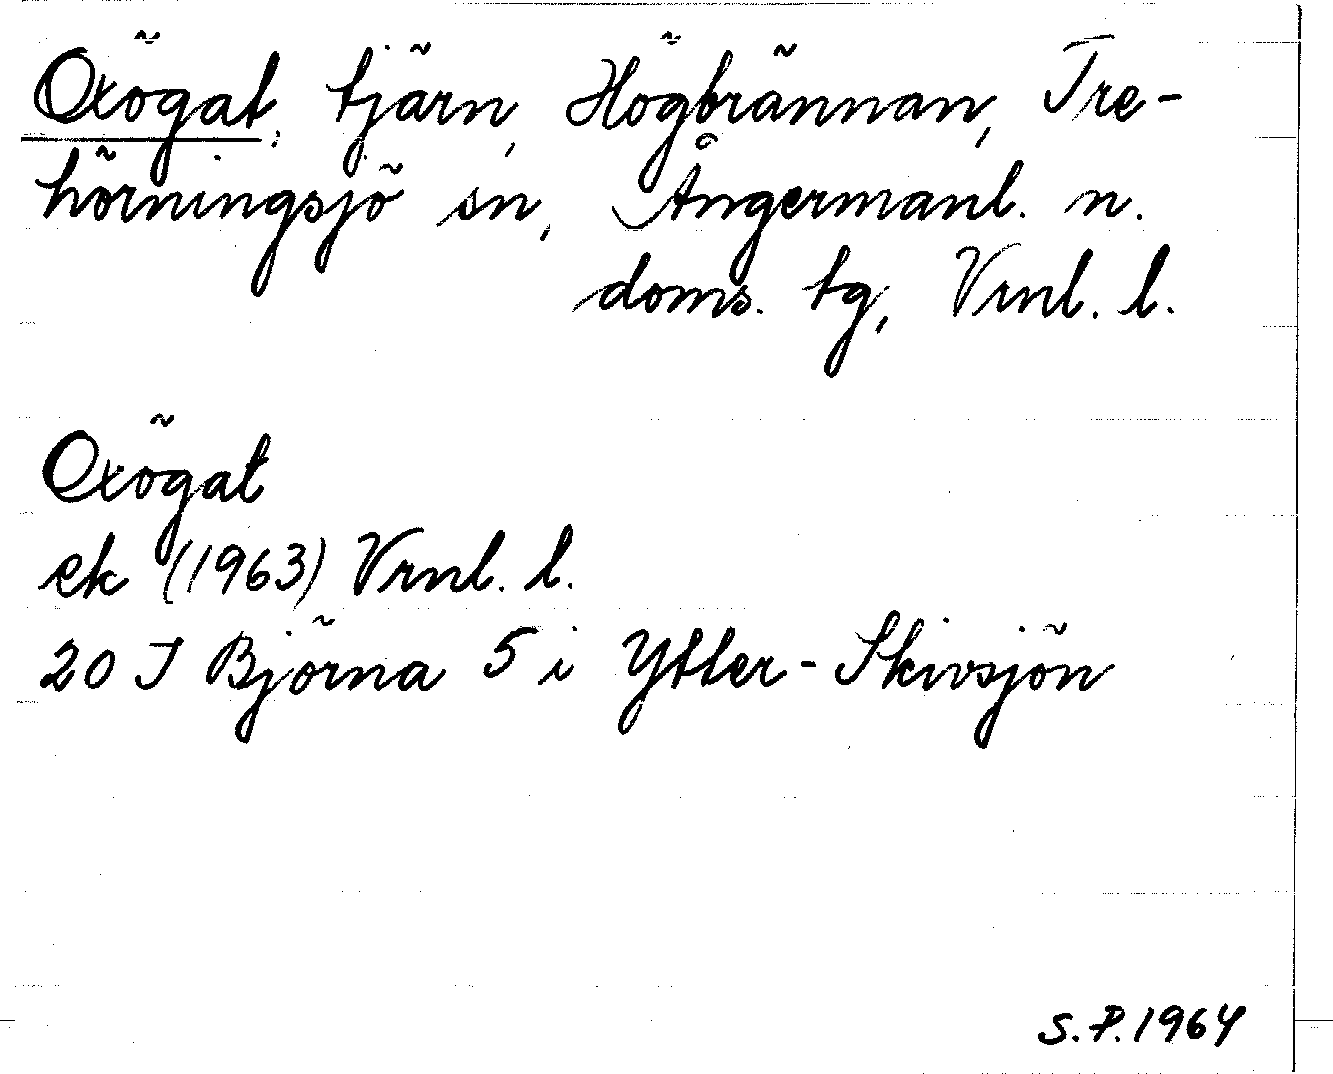 Oxögat, tjärn, Högbrännan, Tre-
hörningsjö sn, Ångermanl. n.
doms. tg, Vrnl. l.
Oxögat
ek (1963) Vrnl. l.
20 J Björna 5 i Ytter-Skivsjön
S.P. 1964